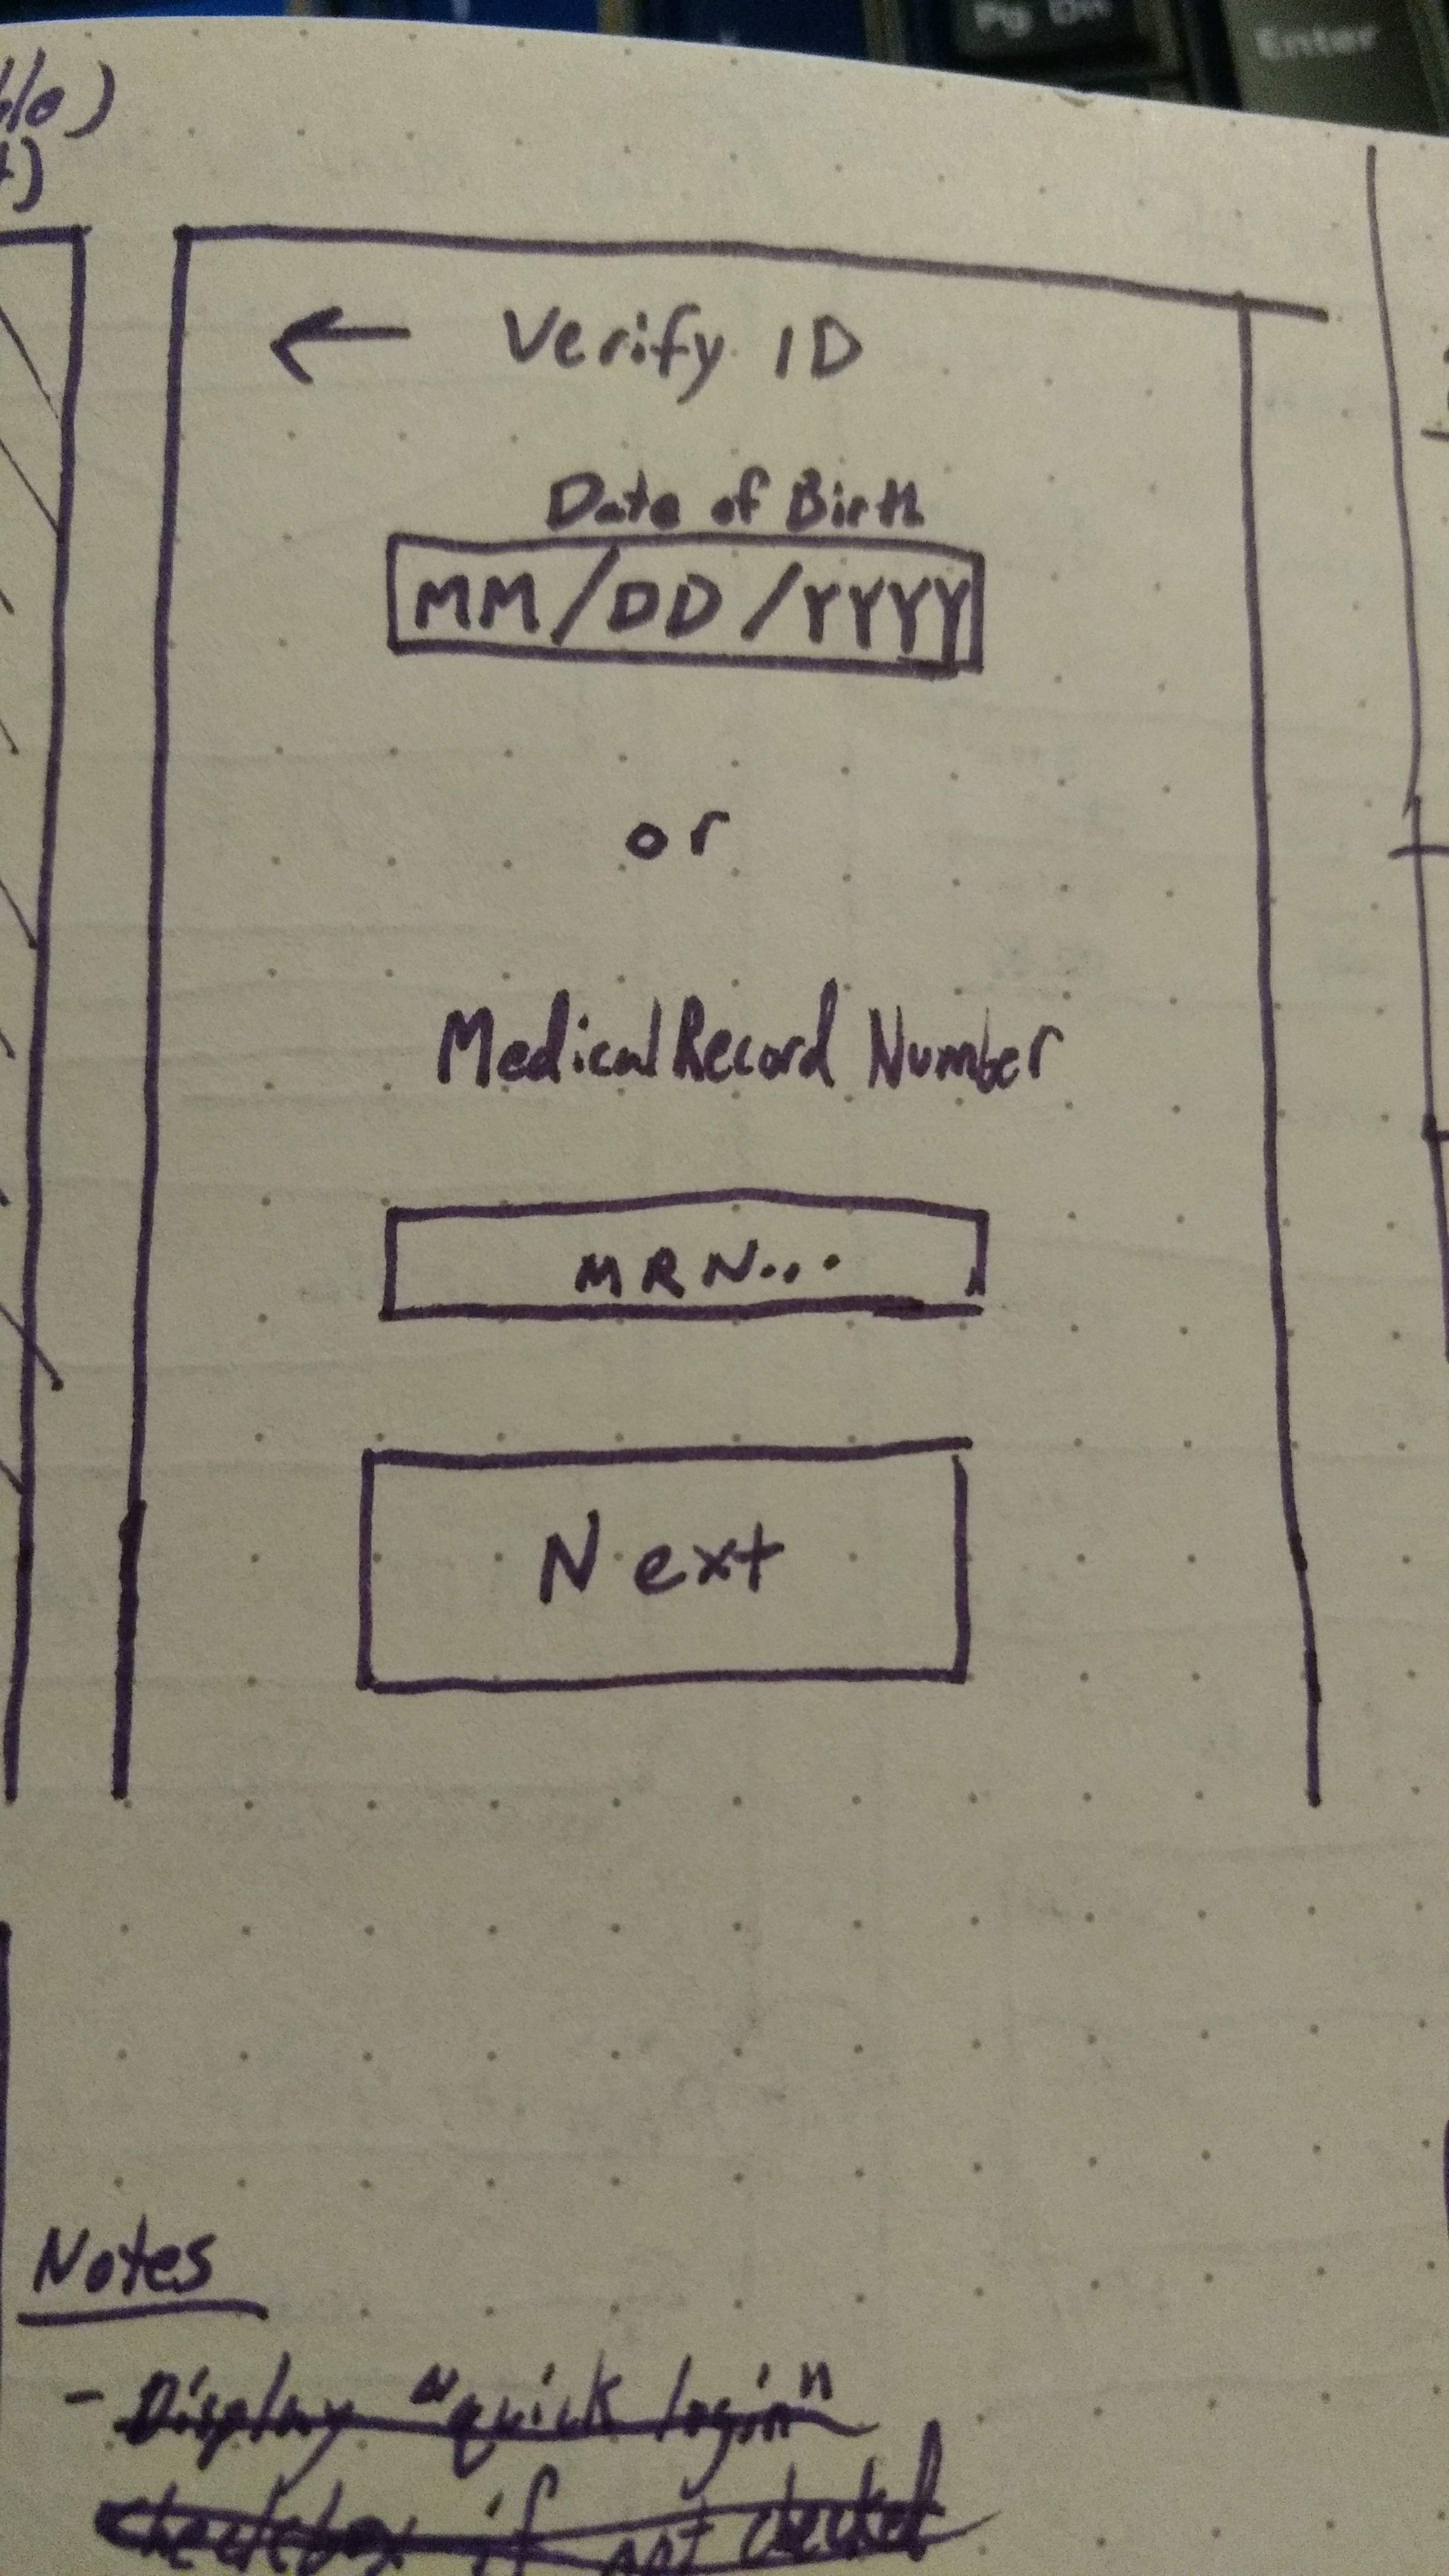 Pg Dn
Enter
← Verify ID
Date of Birth
MM/DD/YYYY
or
Medical Record Number
MRN...
Next
Notes
- Display "quick login"
checkbox if not checked